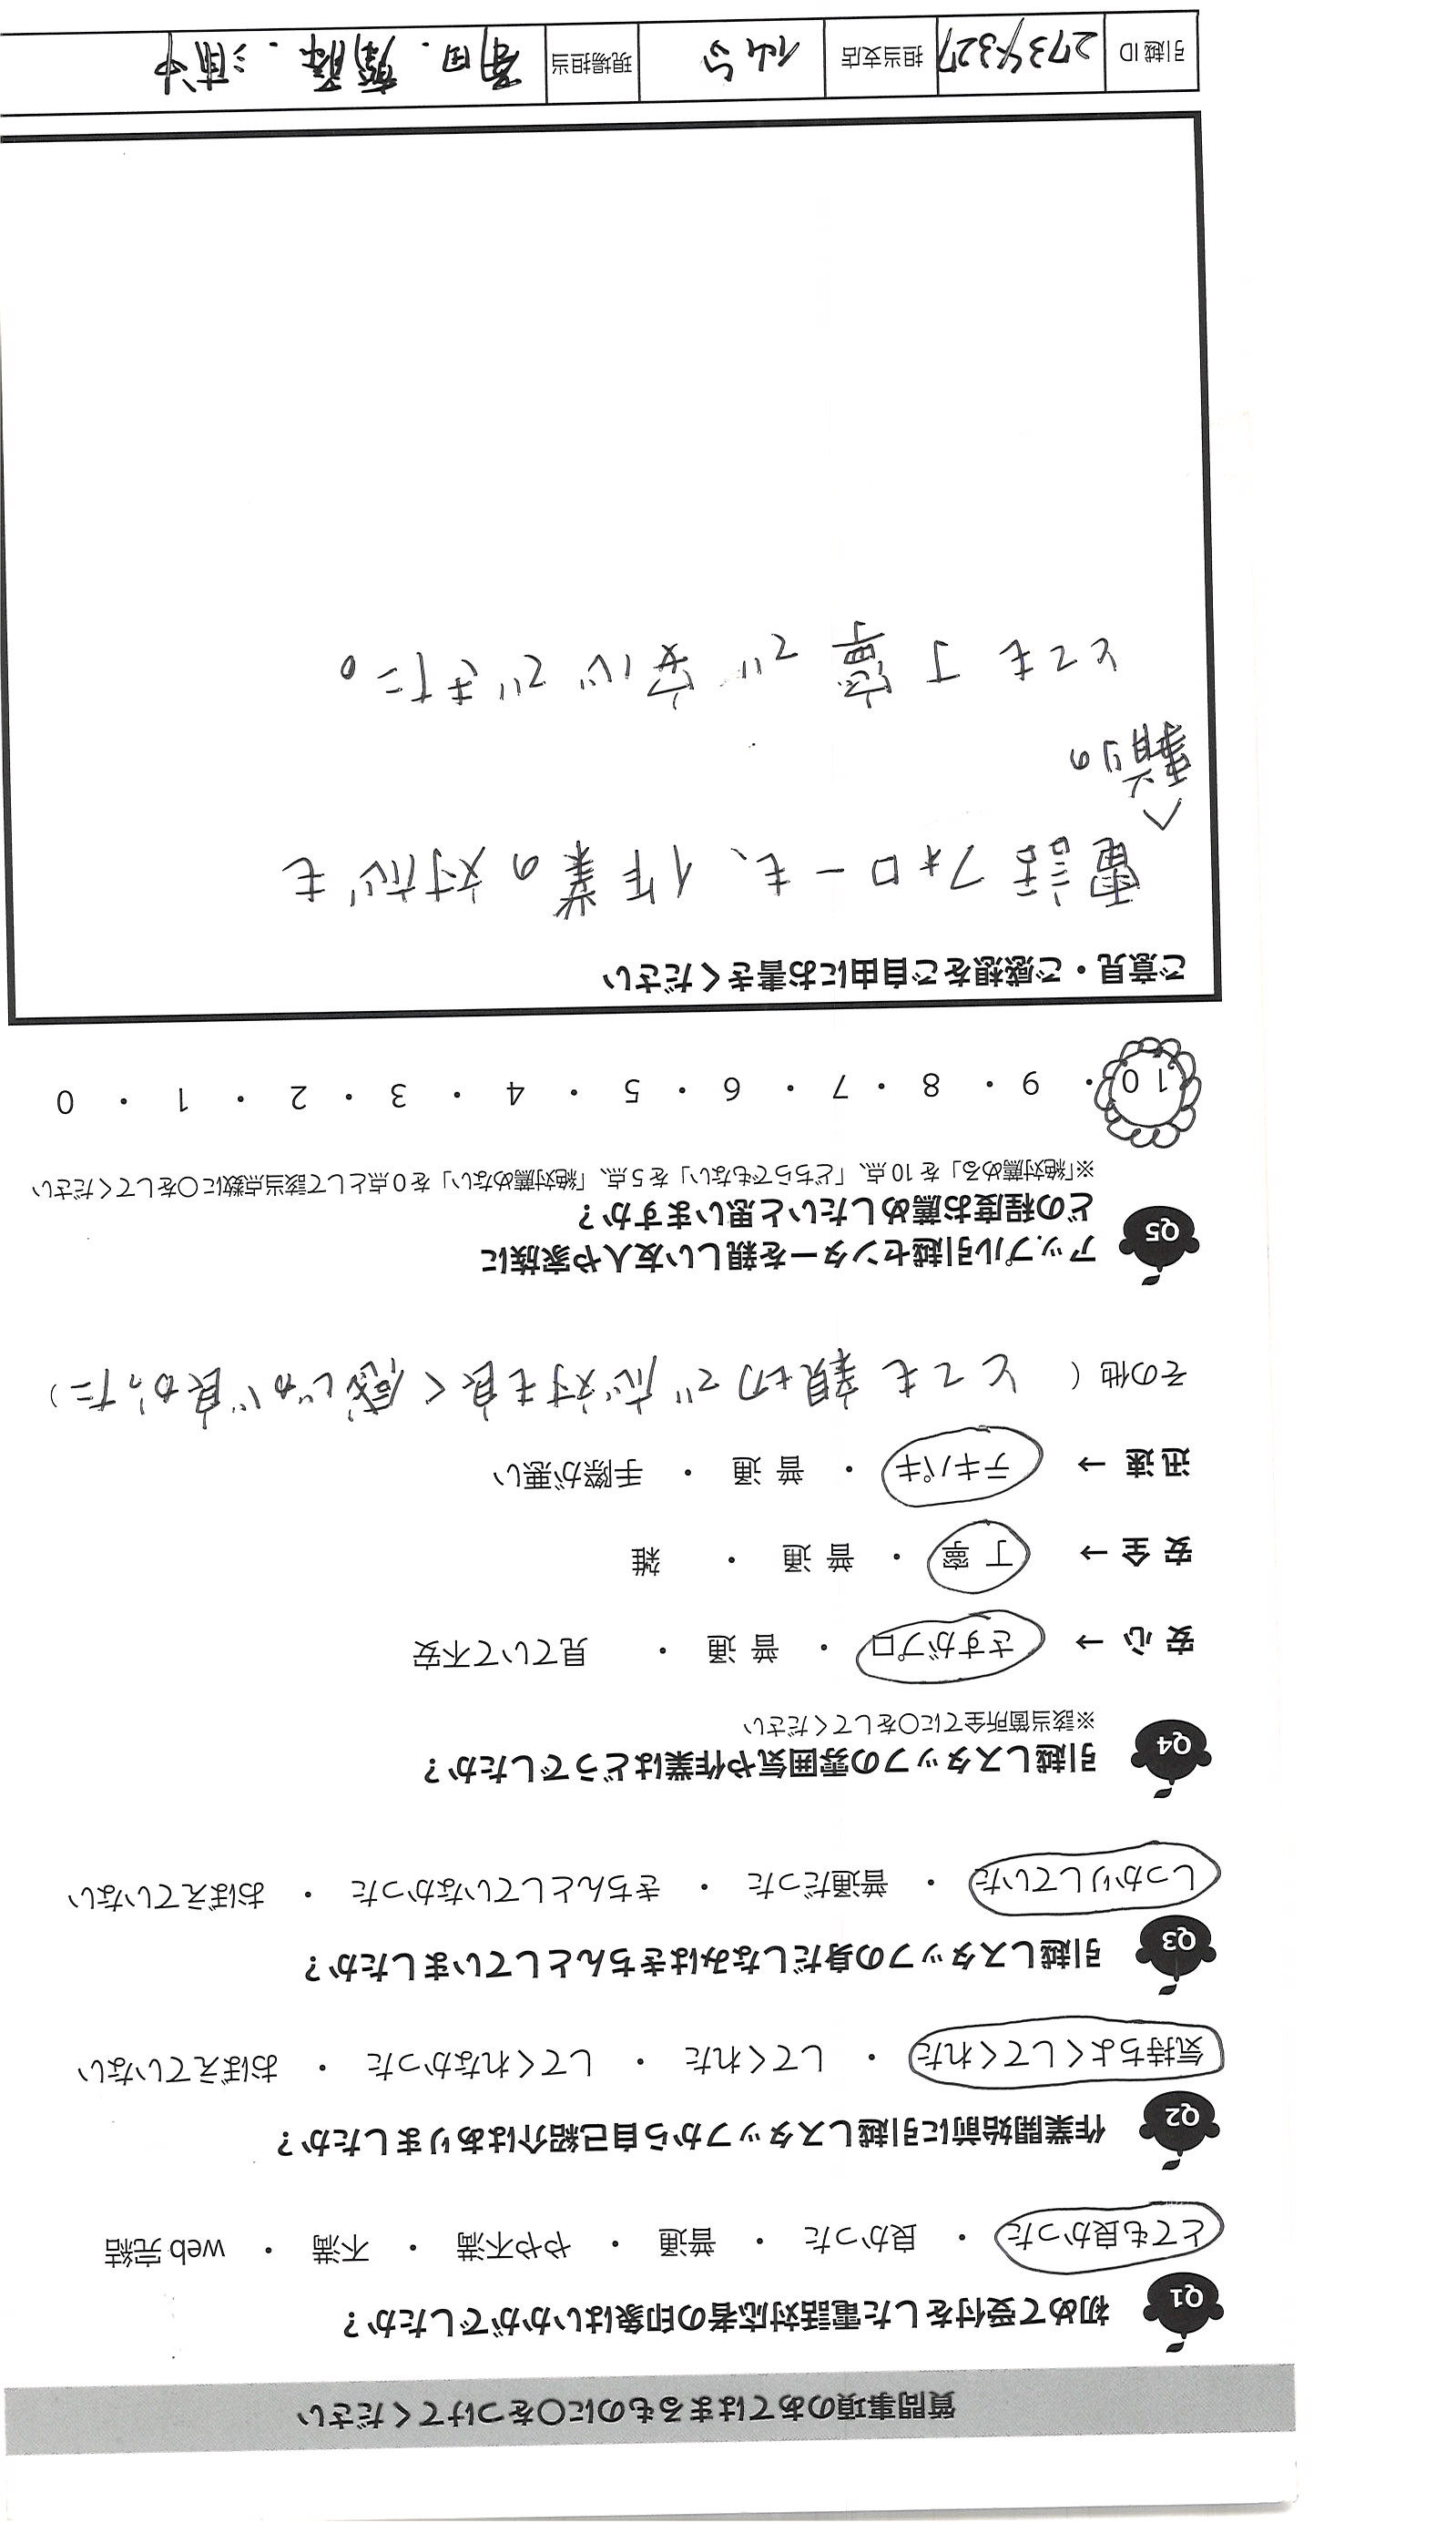 質問事項のあてはまるものに○をつけてください
Q1 初めて受付をした電話対応者の印象はいかがでしたか？
とても良かった ・ 良かった ・ 普通 ・ やや不満 ・ 不満 ・ web完結
Q2 作業開始前に引越しスタッフから自己紹介はありましたか？
気持ちよくしてくれた ・ してくれた ・ してくれなかった ・ おぼえていない
Q3 引越しスタッフの身だしなみはきちんとしていましたか？
しっかりしていた ・ 普通だった ・ きちんとしていなかった ・ おぼえていない
Q4 引越しスタッフの雰囲気や作業はどうでしたか？
※該当箇所全てに○をしてください
安心 → さすがプロ ・ 普通 ・ 見ていて不安
安全 → 丁寧 ・ 普通 ・ 雑
迅速 → テキパキ ・ 普通 ・ 手際が悪い
その他（ とても親切で応対も良く感じが良かった）
Q5 アップル引越センターを親しい友人や家族に
どの程度お薦めしたいと思いますか？
※「絶対薦める」を10点、「どちらでもない」を5点、「絶対薦めない」を0点として該当点数に○をしてください
10 ・ 9 ・ 8 ・ 7 ・ 6 ・ 5 ・ 4 ・ 3 ・ 2 ・ 1 ・ 0
ご意見・ご感想をご自由にお書きください
電話フォローも、作業の対応も
見積りの
とても丁寧で安心できた。
引越ID 担当支店 仙台 現場担当